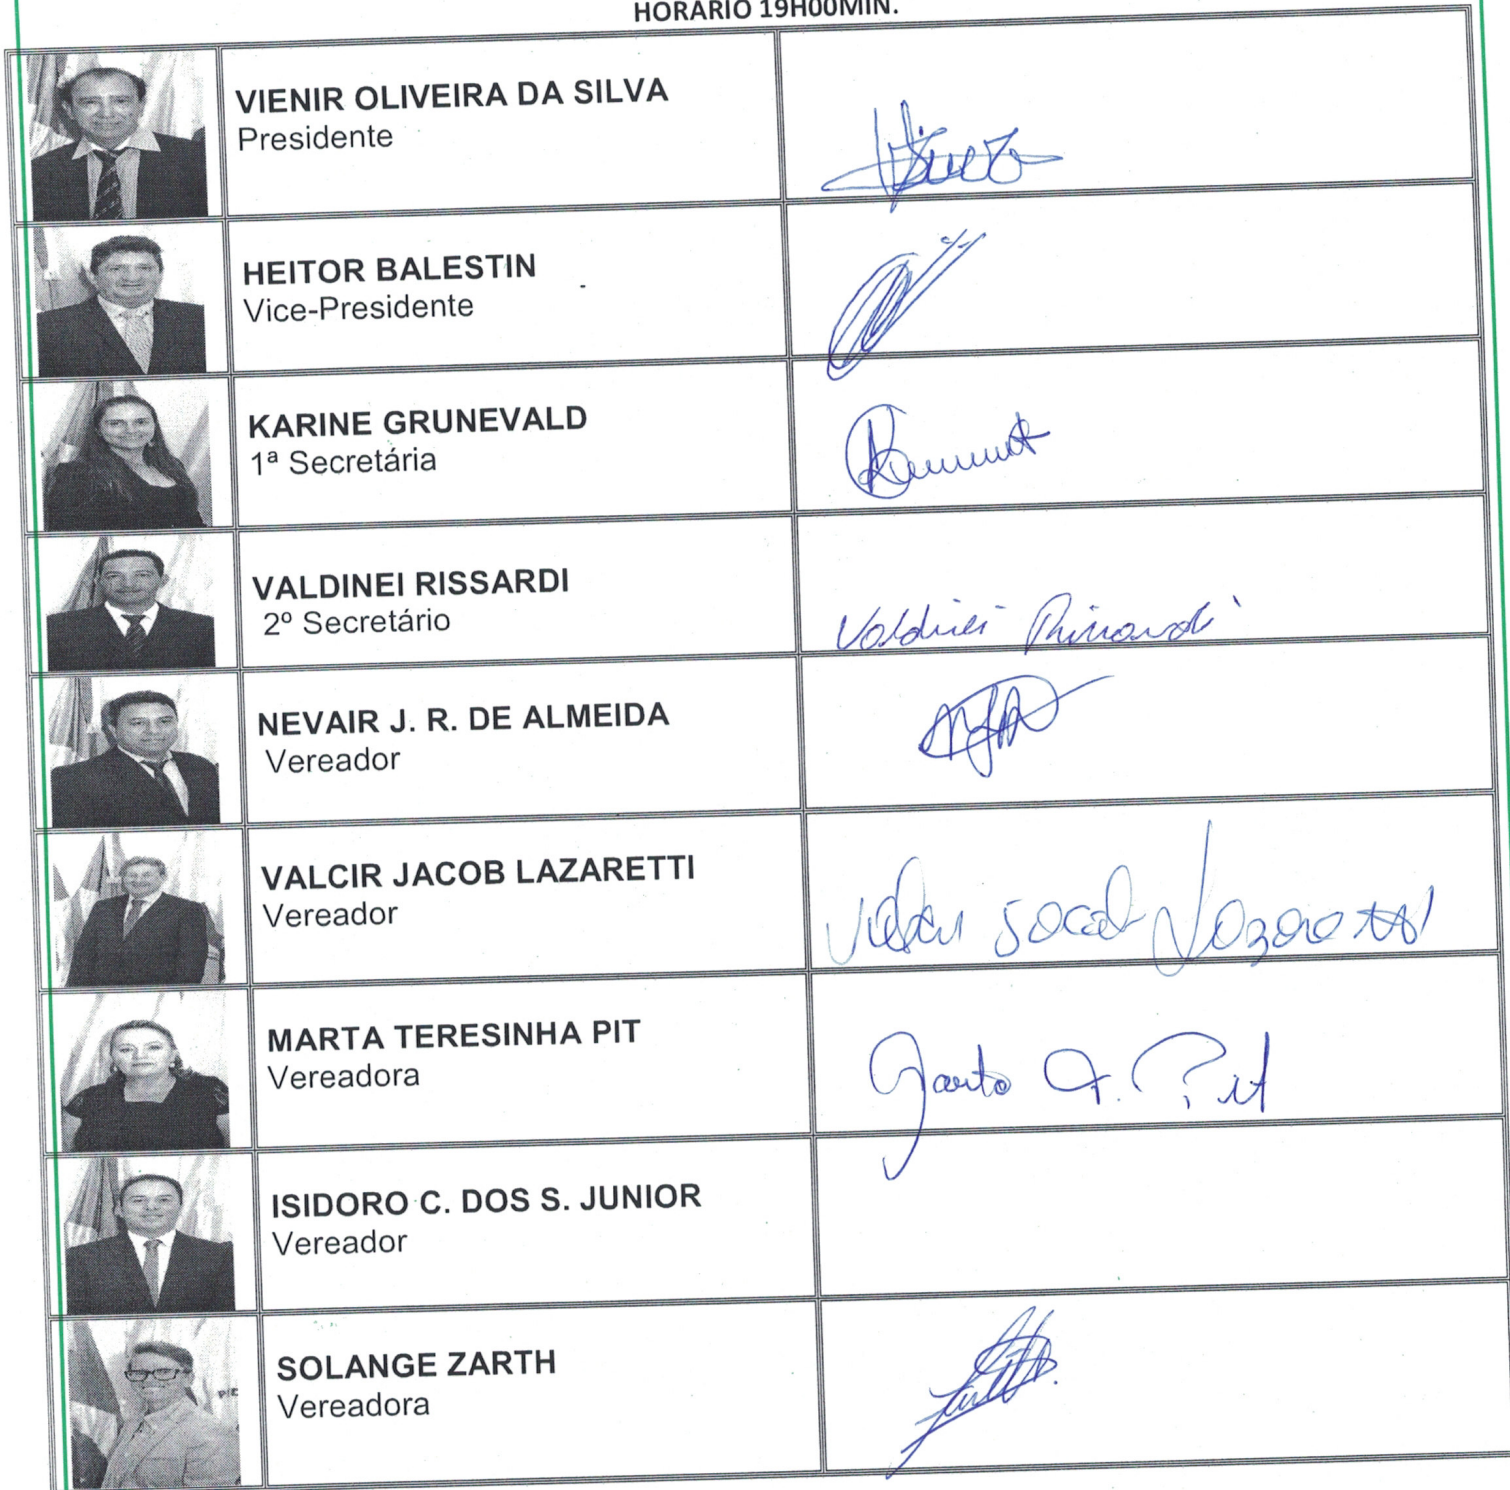 HORÁRIO 19H00MIN.
VIENIR OLIVEIRA DA SILVA
Presidente
HEITOR BALESTIN
Vice-Presidente
KARINE GRUNEVALD
1ª Secretária
VALDINEI RISSARDI
2º Secretário
Valdinei Rissardi
NEVAIR J. R. DE ALMEIDA
Vereador
VALCIR JACOB LAZARETTI
Vereador
Valcir Jacob Lazaretti
MARTA TERESINHA PIT
Vereadora
Marta T. Pit
ISIDORO C. DOS S. JUNIOR
Vereador
SOLANGE ZARTH
Vereadora